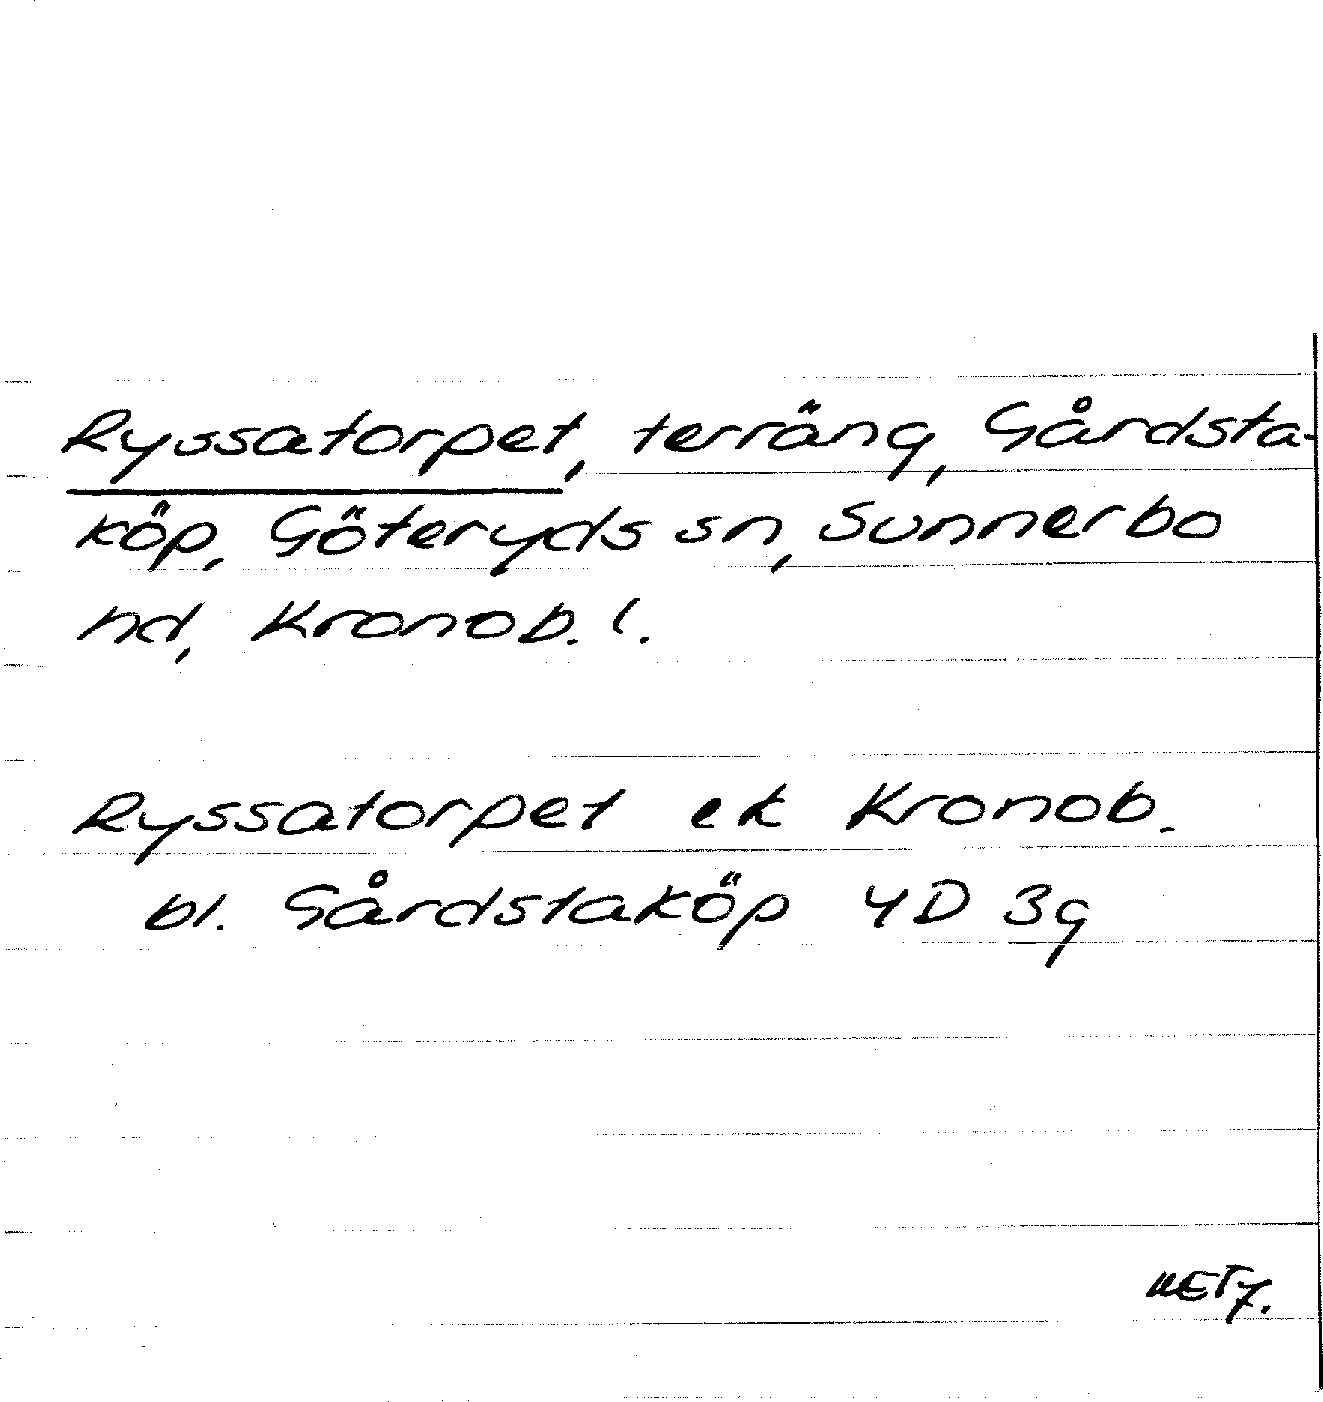 Ryssatorpet, terräng, Gårdsta-
köp, Göteryds sn, Sunnerbo
hd, Kronob. l.
Ryssatorpet ek Kronob.
bl. Gårdstaköp 4D 3g